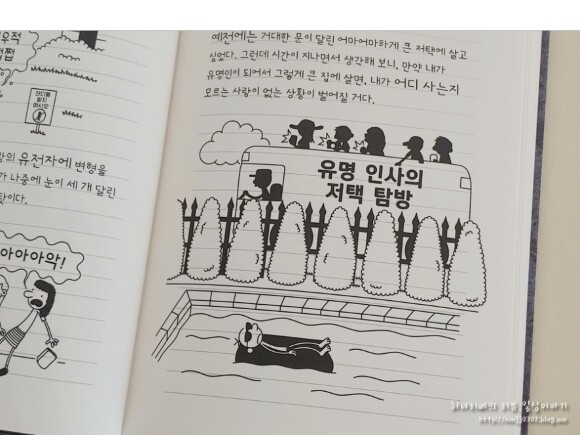 우적
쩝
잔디를
밟지
마시오
의 유전자에 변형을
가 나중에 눈이 세 개 달린
탓이다.
아아아악!
예전에는 거대한 문이 달린 어마어마하게 큰 저택에 살고
싶었다. 그런데 시간이 지나면서 생각해 보니, 만약 내가
유명인이 되어서 그렇게 큰 집에 살면, 내가 어디 사는지
모르는 사람이 없는 상황이 벌어질 거다.
유명 인사의
저택 탐방